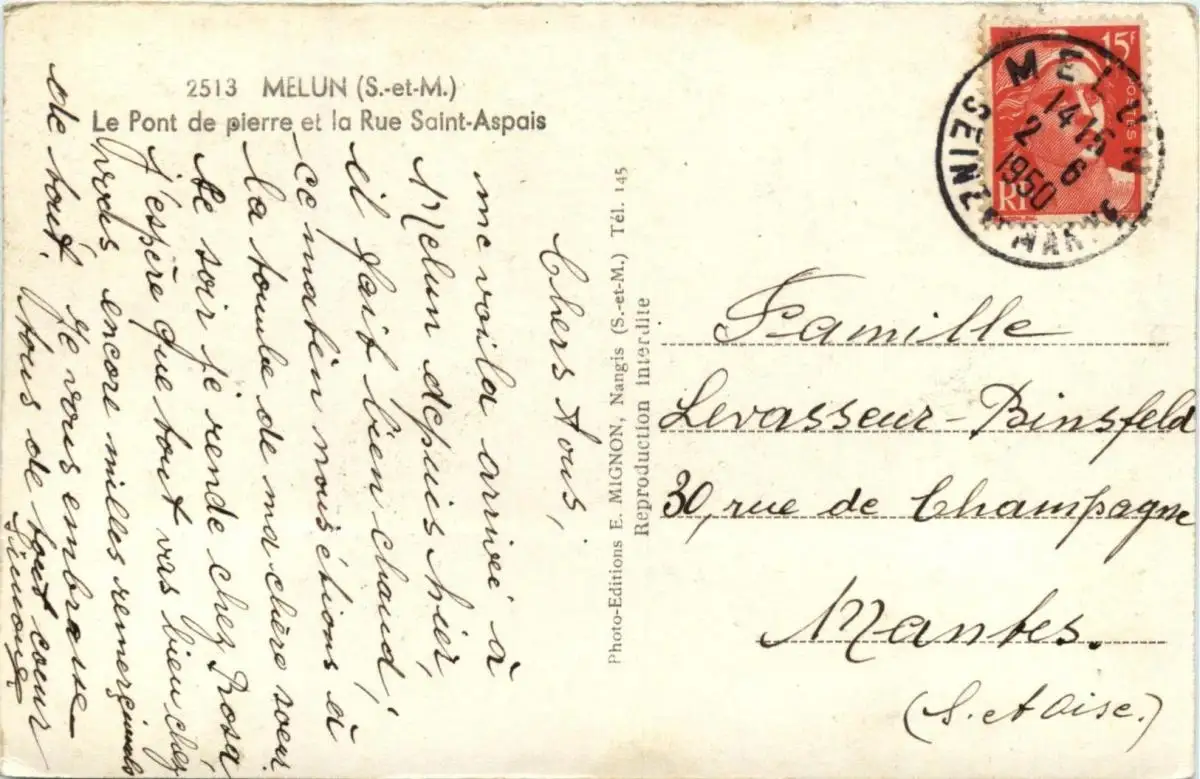 2513 MELUN (S.-et-M.)
Le Pont de pierre et la Rue Saint-Aspais
Chers Tous,
me voila arrivée à
Melun depuis hier,
il fait bien chaud,
ce matin nous étions à
la tombe de ma chère soeur
Ce soir je rende chez Rosa,
j'espère que tout vas bien chez
vous encore milles remerçiments
de tout. Je vous embrasse
tous de tout coeur
Simone
Photo-Editions E. MIGNON, Nangis (S.-et-M.) Tél. 145
Reproduction interdite
15f
POSTES
RF
MELUN
14 15
2 6
1950
SEINE ET MARNE
Famille
Levasseur-Binsfeld
30, rue de Champagne
Mantes.
(S. et Oise.)